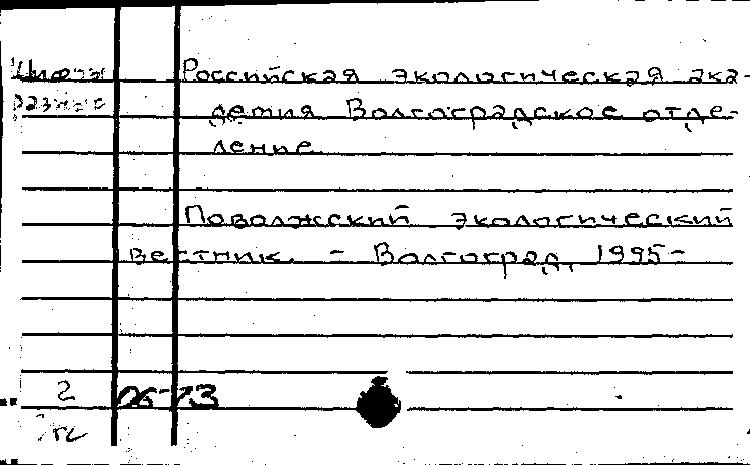 Цифры Российская экологическая ака-
разные демия Волгоградское отде-
ление
Поволжский экологический
вестник. - Волгоград, 1995-
2 06-73